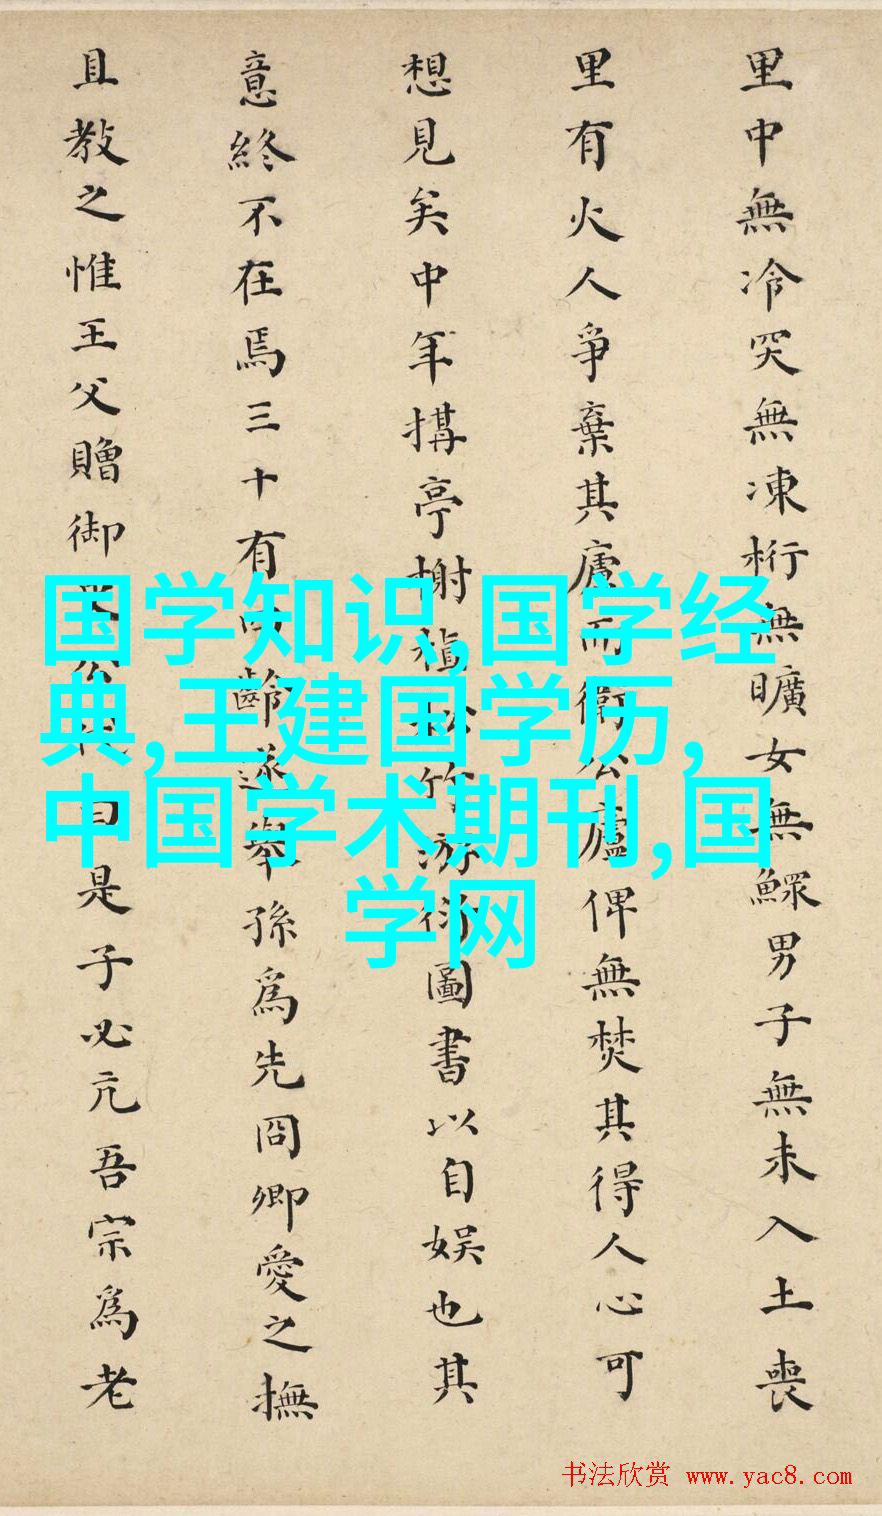 里中無冷突無凍桁無曠女無鰥男子無未入土喪
里有火人爭棄其廬而衛公廬俾無焚其得人心可
想見矣中年搆亭榭植松竹游衍圖書以自娛也其
意終不在焉三十有齡遂舉孫爲先冏卿愛之撫
且教之惟王父贈御史公曰是子必亢吾宗爲老
国学知识,国学经
典,王建国学历,
中国学术期刊,国
学网
书法欣赏 www.yac8.com